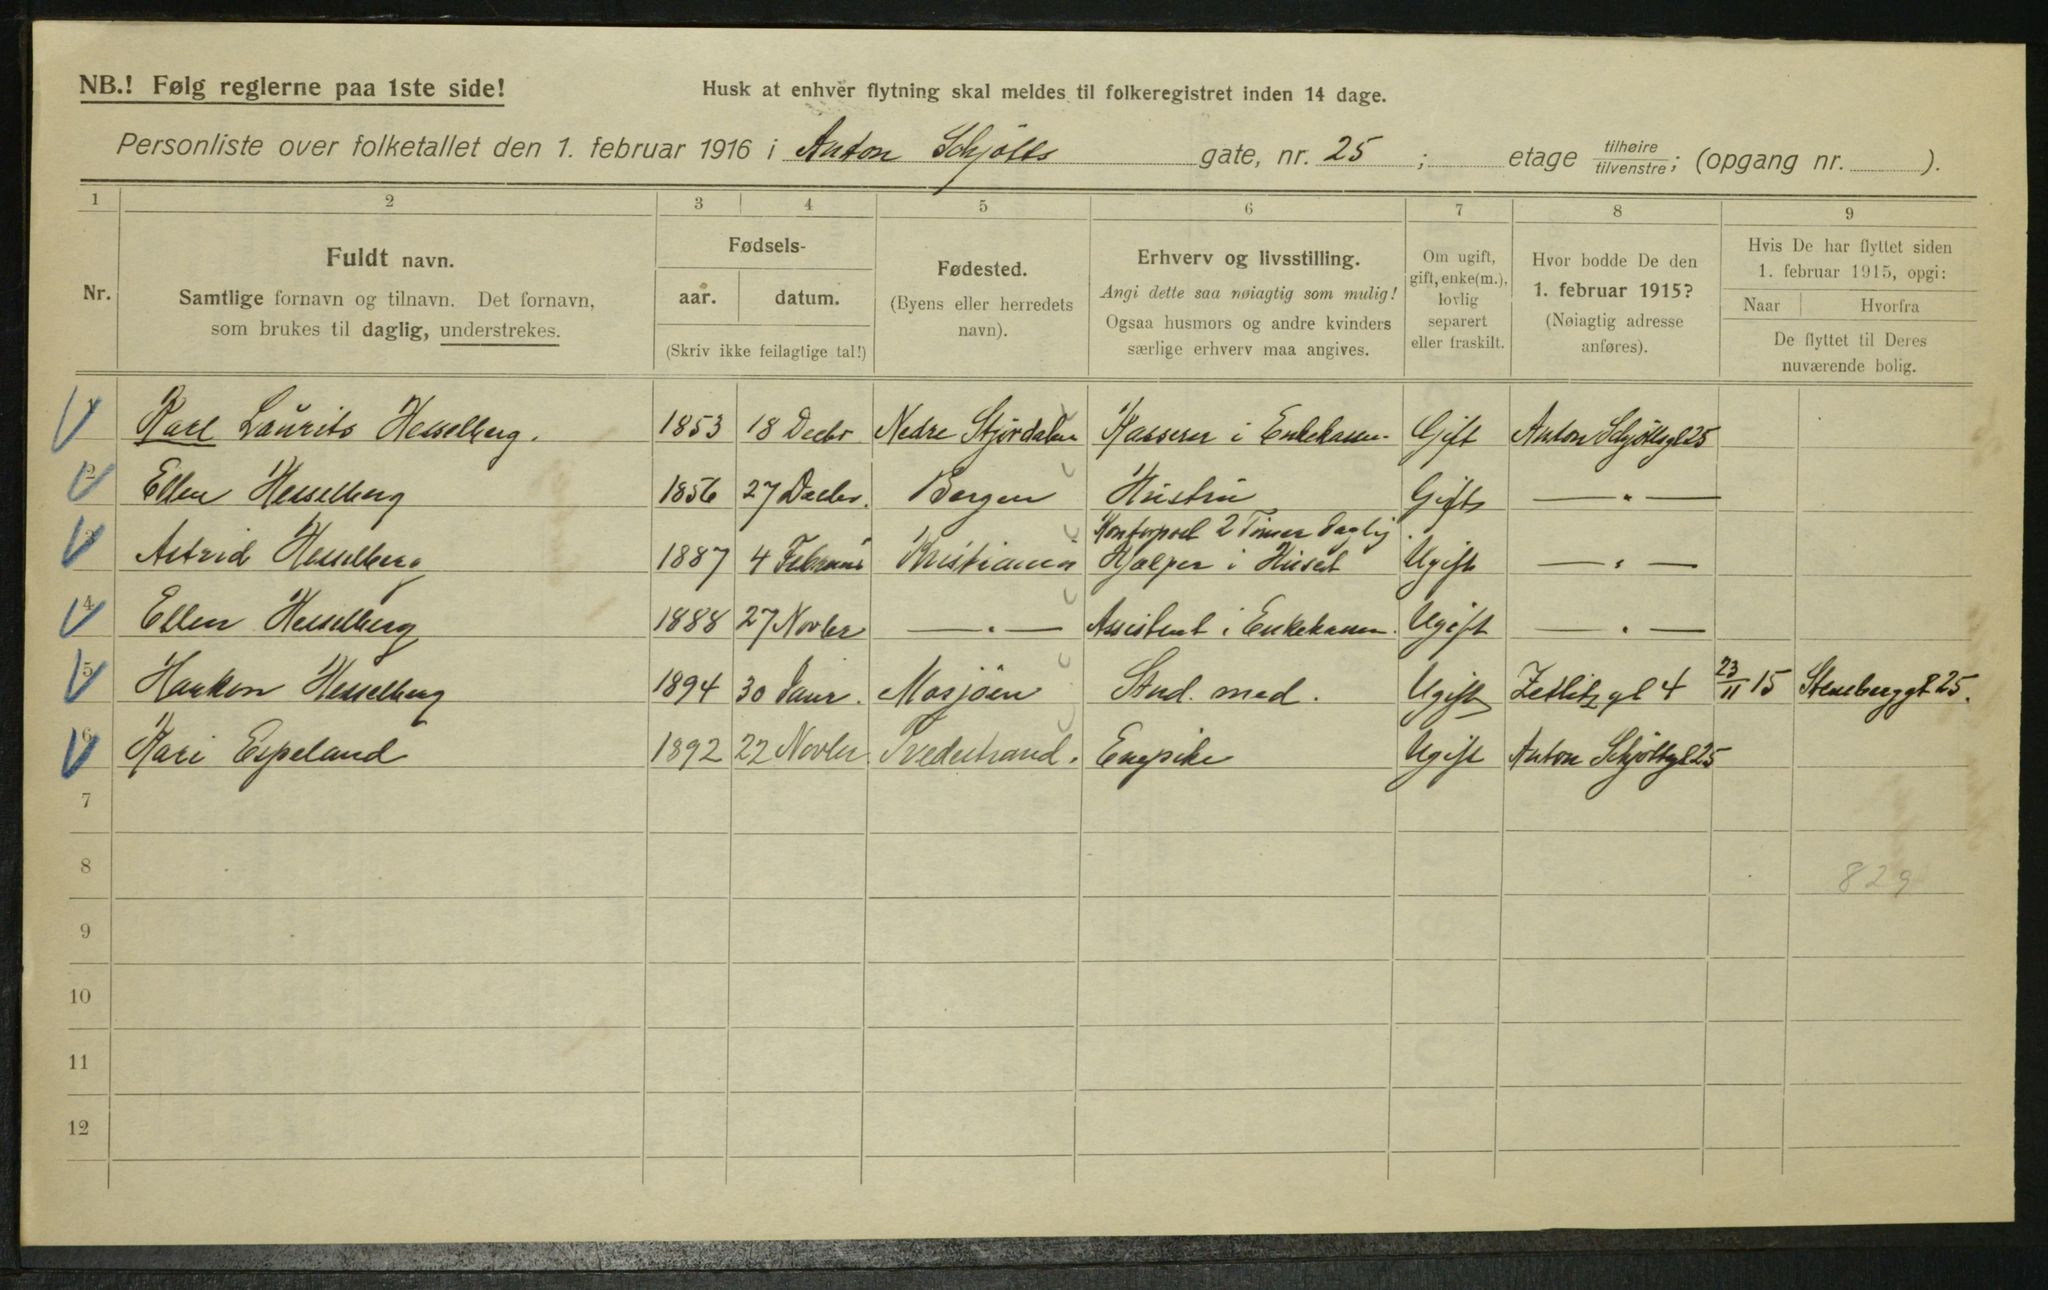 NB.! Følg reglerne paa 1ste side!
Husk at enhver flytning skal meldes til folkeregistret inden 14 dage.
Personliste over folketallet den 1. februar 1916 i Anton Schjøtts gate, nr. 25 ; etage tilhøire/tilvenstre; (opgang nr. ).
1 2 3 4 5 6 7 8 9
Nr.
Fuldt navn.
Samtlige fornavn og tilnavn. Det fornavn,
som brukes til daglig, understrekes.
Fødsels-
aar. datum.
(Skriv ikke feilagtige tal!)
Fødested.
(Byens eller herredets
navn).
Erhverv og livsstilling.
Angi dette saa nøiagtig som mulig!
Ogsaa husmors og andre kvinders
særlige erhverv maa angives.
Om ugift,
gift, enke(m.),
lovlig
separert
eller fraskilt.
Hvor bodde De den
1. februar 1915?
(Nøiagtig adresse
anføres).
Hvis De har flyttet siden
1. februar 1915, opgi:
Naar Hvorfra
De flyttet til Deres
nuværende bolig.
1 Karl Laurits Hesselberg. 1853 18 Decbr Nedre Stjørdalen Kasserer i Enkekassen Gift Anton Schjøttsgt 25
2 Ellen Hesselberg 1856 27 Decbr. Bergen Hustru Gift — " —
3 Astrid Hesselberg 1887 4 Februar Kristiania Kontorpost 2 Timer daglig
Hjælper i Huset Ugift — " —
4 Ellen Hesselberg 1888 27 Novbr — " — Assistent i Enkekassen. Ugift — " —
5 Haakon Hesselberg 1894 30 Janr. Mosjøen Stud. med. Ugift Zetlitz gt 4 23/11 15 Stensberggt 25.
6 Kari Espeland 1892 22 Novbr. Tvedestrand. Enepike Ugift Anton Schjøttgt 25
7
8
829
9
10
11
12